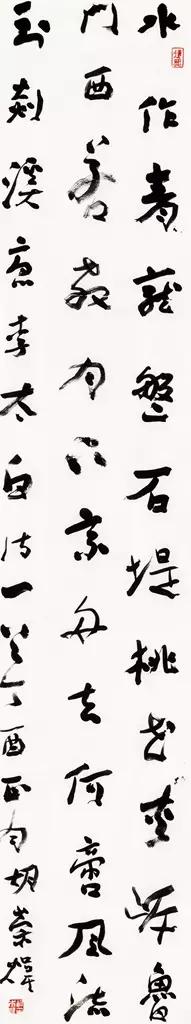 水作青龍盤石堤桃花夾岸魯
門西若教月下乘舟去何啻風流
到剡溪唐李太白詩一首丁酉正月胡榮